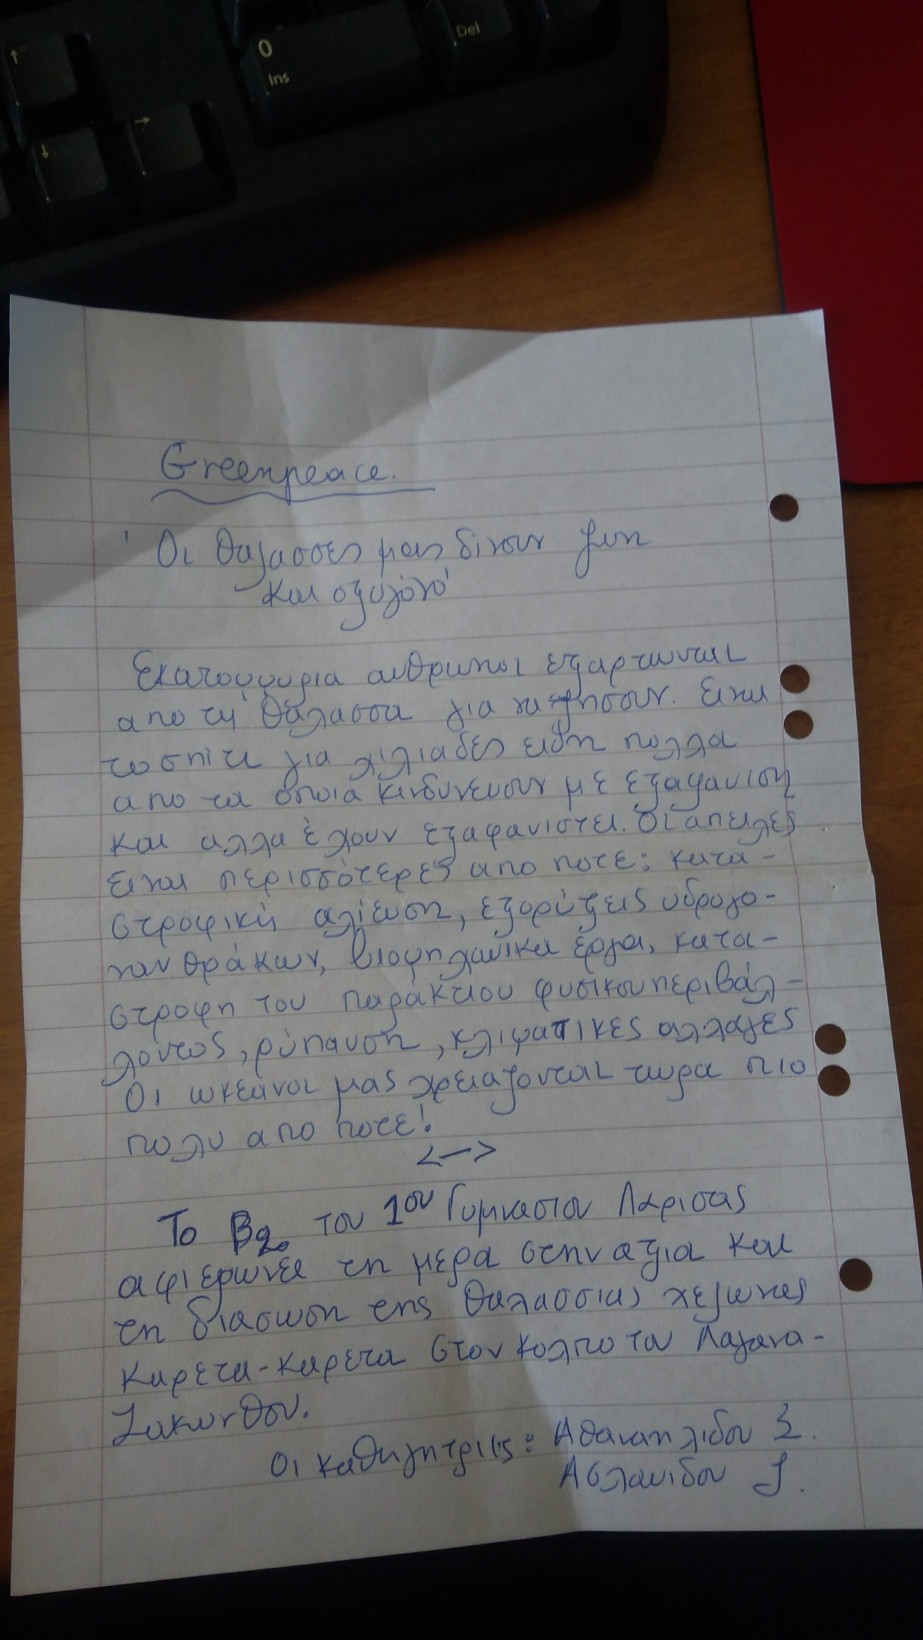 0
Ins
Del
Greenpeace.
'Οι θαλασσες μας δινουν ζωη
και οξυγόνο'
Εκατομμυρια ανθρωποι εξαρτωνται
απο τη θάλασσα για να ζησουν. Ειναι
το σπίτι για χιλιαδες ειδη πολλα
απο τα οποια κινδυνευουν με εξαφανιση
και αλλα έχουν εξαφανιστει. Οι απειλες
ειναι περισσότερες απο ποτε: κατα-
στροφική αλίευση, εξορύξεις υδρογο-
νανθράκων, βιομηχανικα έργα, κατα-
στροφη του παράκτιου φυσικου περιβάλ-
λοντος, ρύπανση, κλιματικές αλλαγές
Οι ωκεανοι μας χρειαζονται τωρα πιο
πολυ απο ποτε!
<-->
Το Β2 του 1ου Γυμνασιου Λαρισας
αφιερωνει τη μερα στην αξια και
τη διασωση της θαλασσιας χελωνας
καρετα-καρετα στον κολπο του Λαγανα-
Ζακυνθου.
Οι καθηγητριες: Σ.
Ασλανιδου